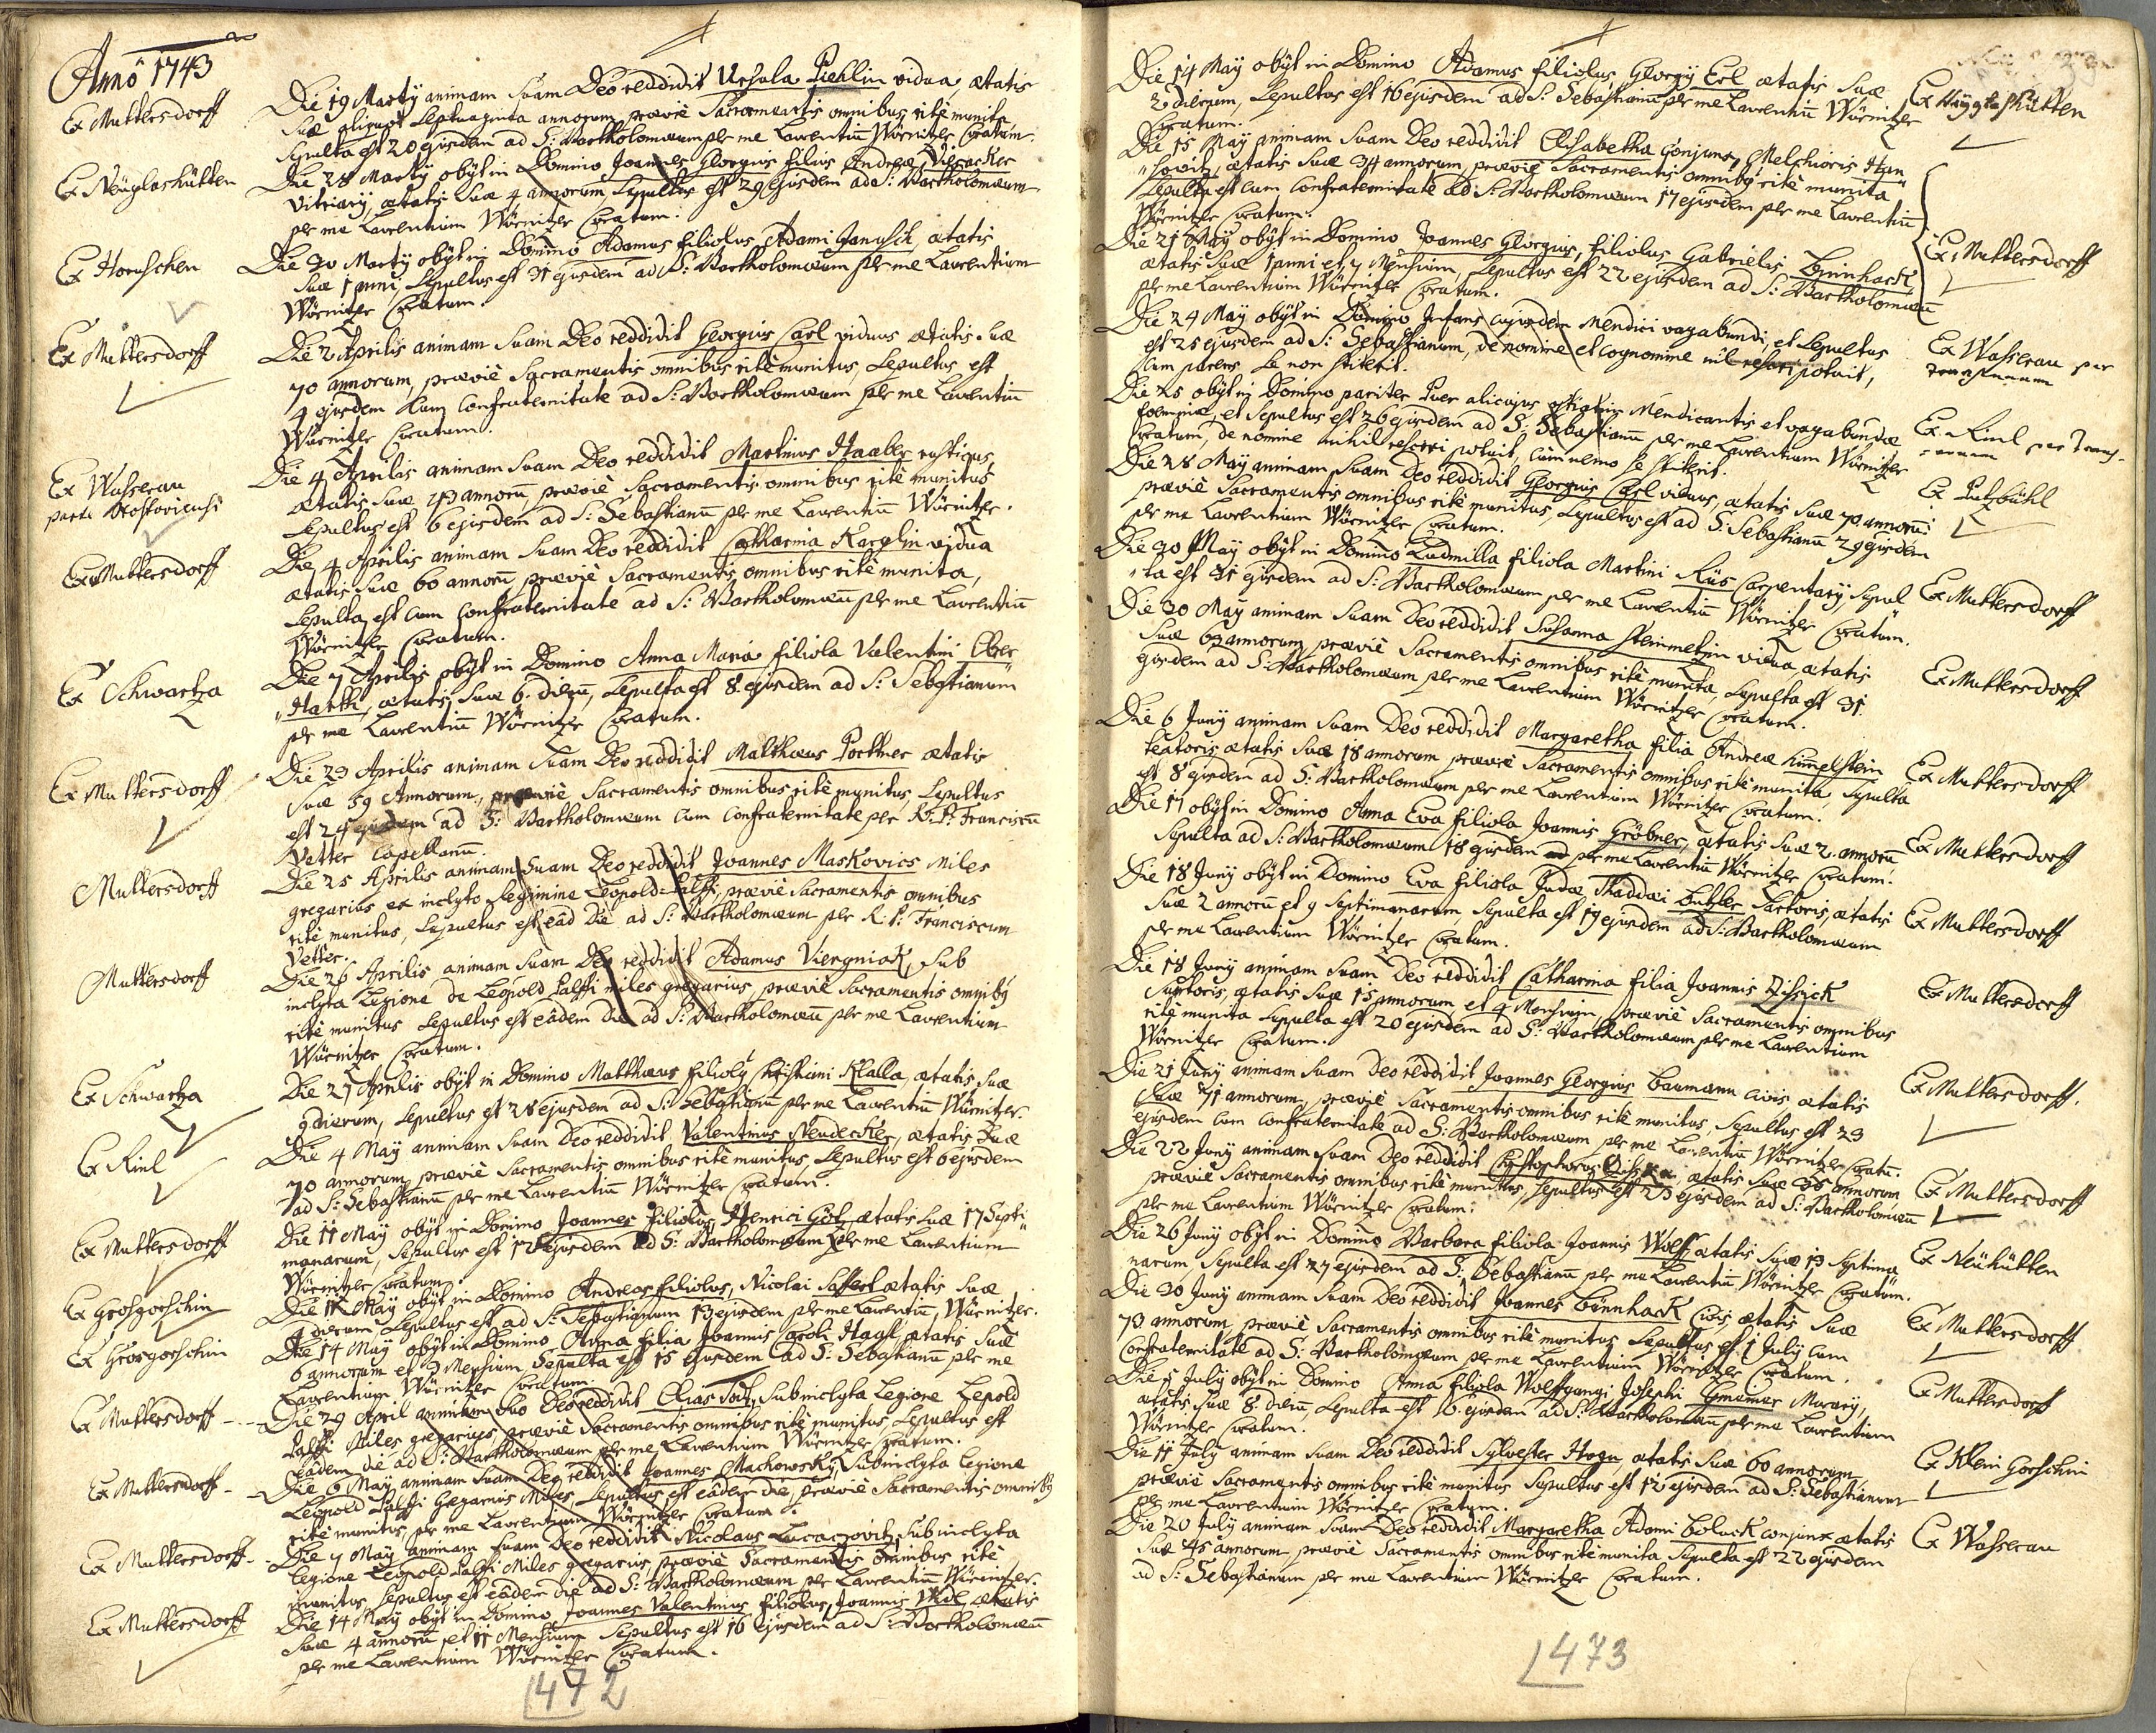 Anno 1743
Ex Muttersdorff
Die 19 Martÿ animam suam Deo reddidit Ursula Piehlin vidua, ætatis
suæ aliquot septuaginta annorum prævie Sacramentis omnibus rite munita,
sepulta est 20 ejusdem ad S: Bartholomæum per me Laurentiū Würnitzer Curatum.
Ex Neuglashütten
Die 28 Martÿ obÿt in Domino Joannes Georgius filius Andreæ
Vitriarÿ, ætatis suæ 4 annorum, Sepultus est 29 ejusdem ad S: Bartholomæum
per me Laurentium Würnitzer Curatum.
Ex Horuschen
Die 30 Martÿ obÿt in Domino Adamus filiolus Adami Janusch, ætatis
suæ 1 anni, Sepultus est 31 ejusdem ad S: Bartholomæum per me Laurentium
Würnitzer Curatum.
Ex Muttersdorff
Die 2 Aprilis animam suam Deo reddidit Georgius Carl viduus ætatis suæ
70 annorum, prævie Sacramentis omnibus rite munitus, Sepultus est
4 ejusdem cum Confraternitate ad S: Bartholomæum per me Laurentiū
Würnitzer Curatum.
Ex Wasserau
parte
Die 4 Aprilis animam suam Deo reddidit Martinus Haaber rusticus,
ætatis suæ 43 annorū, prævie Sacramentis omnibus rite munitus
Sepultus est 6 ejusdem ad S: Sebastianū per me Laurentiū Würnitzer.
Ex Muttersdorff
Die 4 Aprilis animam suam Deo reddidit Catharina Karglin vidua
ætatis suæ 60 annorū, prævie Sacramentis omnibus rite munita,
Sepulta est cum Confraternitate ad S: Bartholomæū per me Laurentiū
Würnitzer Curatum.
Ex Schwartza
Die 7 Aprilis obÿt in Domino Anna Maria filiola Valentini Ober
Harth, ætatis suæ 6. dierū, Sepulta est 8. ejusdem ad S: Sebastianum
per me Laurentiū Würnitzer Curatum.
Ex Muttersdorff
Die 23 Aprilis animam suam Deo reddidit Matthæus Porttner ætatis
suæ 59 Annorum, prævie Sacramentis omnibus rite munitus, Sepultus
est 24 ejusdem ad S: Bartholomæum cum Confraternitate per R: P: Franciscū
Vetter Capellanū.
Muttersdorff
Die 25 Aprilis animam suam Deo reddidit Joannes Maskovics miles
gregarius ex inclyto Regimine Leopold: Palffi, prævie Sacramentis omnibus
rite munitus, Sepultus est eâd die ad S: Bartholomæum per R: P: Franciscum
Vetter.
Muttersdorff
Die 26 Aprilis animam suam Deo reddidit Adamus Viergniak, sub
inclyta Legione de Leopold Palffi miles gregarius, prævie Sacramentis omnibꝰ
rite munitus Sepultus est eâdem die ad S: Bartholomæū per me Laurentium
Würnitzer Curatum.
Ex Schwartza
Die 27 Aprilis obÿt in Domino Matthæus filiolꝰ Christiani Klalla, ætatis suæ
9 dierum, Sepultus est 28 ejusdem ad S: Sebastianū per me Laurentiū Würnitzer.
Ex Rinl
Die 4 Maÿ animam suam Deo reddidit Valentinus Neudecker, ætatis suæ
70 annorum, prævie Sacramentis omnibus rite munitus, Sepultus est 6 ejusdem
ad S: Sebastianū per me Laurentiū Würnitzer Curatum.
Ex Muttersdorff
Die 11 Maÿ obÿt in Domino Joannes filiolus Henrici Götz ætatis suæ 17 Septi
manarum, Sepultus est 12 ejusdem ad S: Bartholomæum per me Laurentium
Würnitzer Curatum.
Ex Grosgorschin
Die 12 Maÿ obÿt in Domino Andreas filiolus, Nicolai Saffert ætatis suæ
4 dierum Sepultus est ad S: Sebastianum 13 ejusdem per me Laurentiū Würnitzer.
Ex Grosgorschin
Die 14 Maÿ obÿt in Domino Anna filia Joannis Caroli Haasl ætatis suæ
6 annorum et 9 Mensium Sepulta est 15 ejusdem ad S: Sebastianū per me
Laurentium Würnitzer Curatum.
Ex Muttersdorff
Die 29 April animam suo Deo reddidit Elias Toth, sub inclyta Legione Lepold
Palffi Miles gregarius, prævie Sacramentis omnibus rite munitus, Sepultus est
eâdem die ad S: Bartholomæum per me Laurentium Würnitzer Curatum.
Ex Muttersdorff
Die 6 Maÿ animam suam Deo reddidit Joannes Machowskÿ, sub inclyta Legione
Leopold Palffi Gregarius Miles, Sepultus est eâdem die, prævie Sacramentis omnibꝰ
rite munitus, per me Laurentium Würnitzer Curatum.
Ex Muttersdorff
Die 7 Maÿ animam suam Deo reddidit Nicolaus Lucaczovitz sub inclyta
Legione Leopold Palffi Miles gregarius, prævie Sacramentis omnibus rite
munitus, Sepultus est eâdem die ad S: Bartholomæum per Laurentiū Würnitzer.
Ex Muttersdorff
Die 14 Maÿ obÿt in Domino Joannes Valentinus filiolus, Joannis Widl, ætatis
suæ 4 annorū et 11 Mensium Sepultus est 16 ejusdem ad S: Bartholomæū
per me Laurentium Würnitzer Curatum.
472
Die 14 Maÿ obÿt in Domino Adamus filiolus Georgÿ Erl ætatis suæ
2 dierum, Sepultus est 16 ejusdem ad S: Sebastianū per me Laurentiū Würnitzer
Curatum.
Die 15 Maÿ animam suam Deo reddidit Elisabetha Conjunx Melchioris Han
ætatis suæ 34 annorum, prævie Sacramentis omnibꝰ rite munita
Sepulta est cum Confraternitate ad S: Bartholomæum 17 ejusdem per me Laurentiū
Würnitzer Curatum.
Die 21 Maÿ obÿt in Domino Joannes Georgius, filiolus Gabrielis Binnhack
ætatis suæ 1 anni et 7 Mensium, Sepultus est 22 ejusdem ad S: Bartholomæū
per me Laurentium Würnitzer Curatum.
Ex Muttersdorff
Die 24 Maÿ obÿt in Domino Infans cujusdem Mendici vagabundi, et Sepultus
est 25 ejusdem ad S: Sebastianum, de nomine et cognomine nil resciri potuit,
cum parens se non stiterit.
Ex Wasserau per
Die 25 obÿt in Domino pariter Puer alicujus ostiatim Mendicantis et vagabundæ
foeminæ, et Sepultus est 26 ejusdem ad S: Sebastianū per me Laurentium Würnitzer
Curatum, de nomine nihil resciri potuit, cum nemo se stiterit.
Ex Rinl per trans-
Die 28 Maÿ animam suam Deo reddidit Georgius Carl viduus, ætatis suæ 70 annorū
prævie Sacramentis omnibus rite munitus, Sepultus est ad S: Sebastianū 29 ejusdem
per me Laurentium Würnitzer Curatum.
Ex Putzbühl
Die 30 Maÿ obÿt in Domino Ludmilla filiola Martini Riis Carpentarÿ, Sepul
ta est 31 ejusdem ad S: Bartholomæum per me Laurentiū Würnitzer Curatum.
Ex Muttersdorff
Die 30 Maÿ animam suam Deo reddidit Susanna Steinmetzin vidua, ætatis
suæ 69 annorum, prævie Sacramentis omnibus rite munita, Sepulta est 31
ejusdem ad S: Bartholomæum per me Laurentium Würnitzer Curatum.
Ex Muttersdorff
Die 6 Junÿ animam suam Deo reddidit Margaretha filia Andreæ Himelstein
textoris ætatis suæ 18 annorum prævie Sacramentis omnibus rite munita, Sepulta
est 8 ejusdem ad S: Bartholomæum per me Laurentium Würnitzer Curatum.
Ex Muttersdorff
Die 17 obÿt in Domino Anna Eva filiola Joannis Gröbner, ætatis suæ 2. annorū,
Sepulta ad S: Bartholomæum 18 ejusdem per me Laurentiū Würnitzer Curatum.
Ex Muttersdorff
Die 18 Junÿ obÿt in Domino Eva filiola Judæ Thaddæi Butzler Sartoris, ætatis
suæ 2 annorū et 9 Septimanarum, Sepulta est 19 ejusdem ad S: Bartholomæum
per me Laurentium Würnitzer Curatum.
Ex Muttersdorff
Die 18 Junÿ animam suam Deo reddidit Catharina filia Joannis Zischick
Sartoris, ætatis suæ 15 annorum et 4 Mensium, prævie Sacramentis omnibus
rite munita Sepulta est 20 ejusdem ad S: Bartholomæum per me Laurentium
Würnitzer Curatum.
Ex Muttersdorff
Die 21 Junÿ animam suam Deo reddidit Joannes Georgius Baumann civis ætatis
suæ 71 annorum, prævie Sacramentis omnibus rite munitus, Sepultus est 23
ejusdem cum Confraternitate ad S: Bartholomæum per me Laurentiū Würnitzer Curatū.
Ex Muttersdorff.
Die 22 Junÿ animam suam Deo reddidit Christophorus ætatis suæ 38 annorum
prævie Sacramentis omnibus rite munitus, Sepultus est 23 ejusdem ad S: Bartholomæū
per me Laurentium Würnitzer Curatum.
Ex Muttersdorff
Die 26 Junÿ obÿt in Domino Barbara filiola Joannis Wolff ætatis suæ 13 Septima
narum, Sepulta est 27 ejusdem ad S: Sebastianū per me Laurentiū Würnitzer Curatum.
Ex Neühütten
Die 30 Junÿ animam suam Deo reddidit Joannes Binnhack Civis, ætatis suæ
73 annorum prævie Sacramentis omnibus rite munitus Sepultus est 1 Julÿ cum
Confraternitate ad S: Bartholomæum per me Laurentium Würnitzer Curatum.
Ex Muttersdorff
Die 5 Julÿ obÿt in Domino Anna filiola Wolffgangi Josephi Gmeiner Murarÿ,
ætatis suæ 8 dierū, Sepulta est 6. ejusdem ad S: Bartholomæū per me Laurentium
Würnitzer Curatum.
Ex Muttersdorff
Die 11 Julÿ animam suam Deo reddidit Sylvester Hogn, ætatis suæ 60 annorum,
prævie Sacramentis omnibus rite munitus Sepultus est 12 ejusdem ad S: Sebastianum
per me Laurentium Würnitzer Curatum.
Ex Klein Gorschin
Die 20 Julÿ animam suam Deo reddidit Margaretha Adami Boluck conjunx ætatis
suæ 45 annorum prævie Sacramentis omnibus rite munita Sepulta est 22 ejusdem
ad S: Sebastianum per me Laurentium Würnitzer Curatum.
Ex Wasserau
473